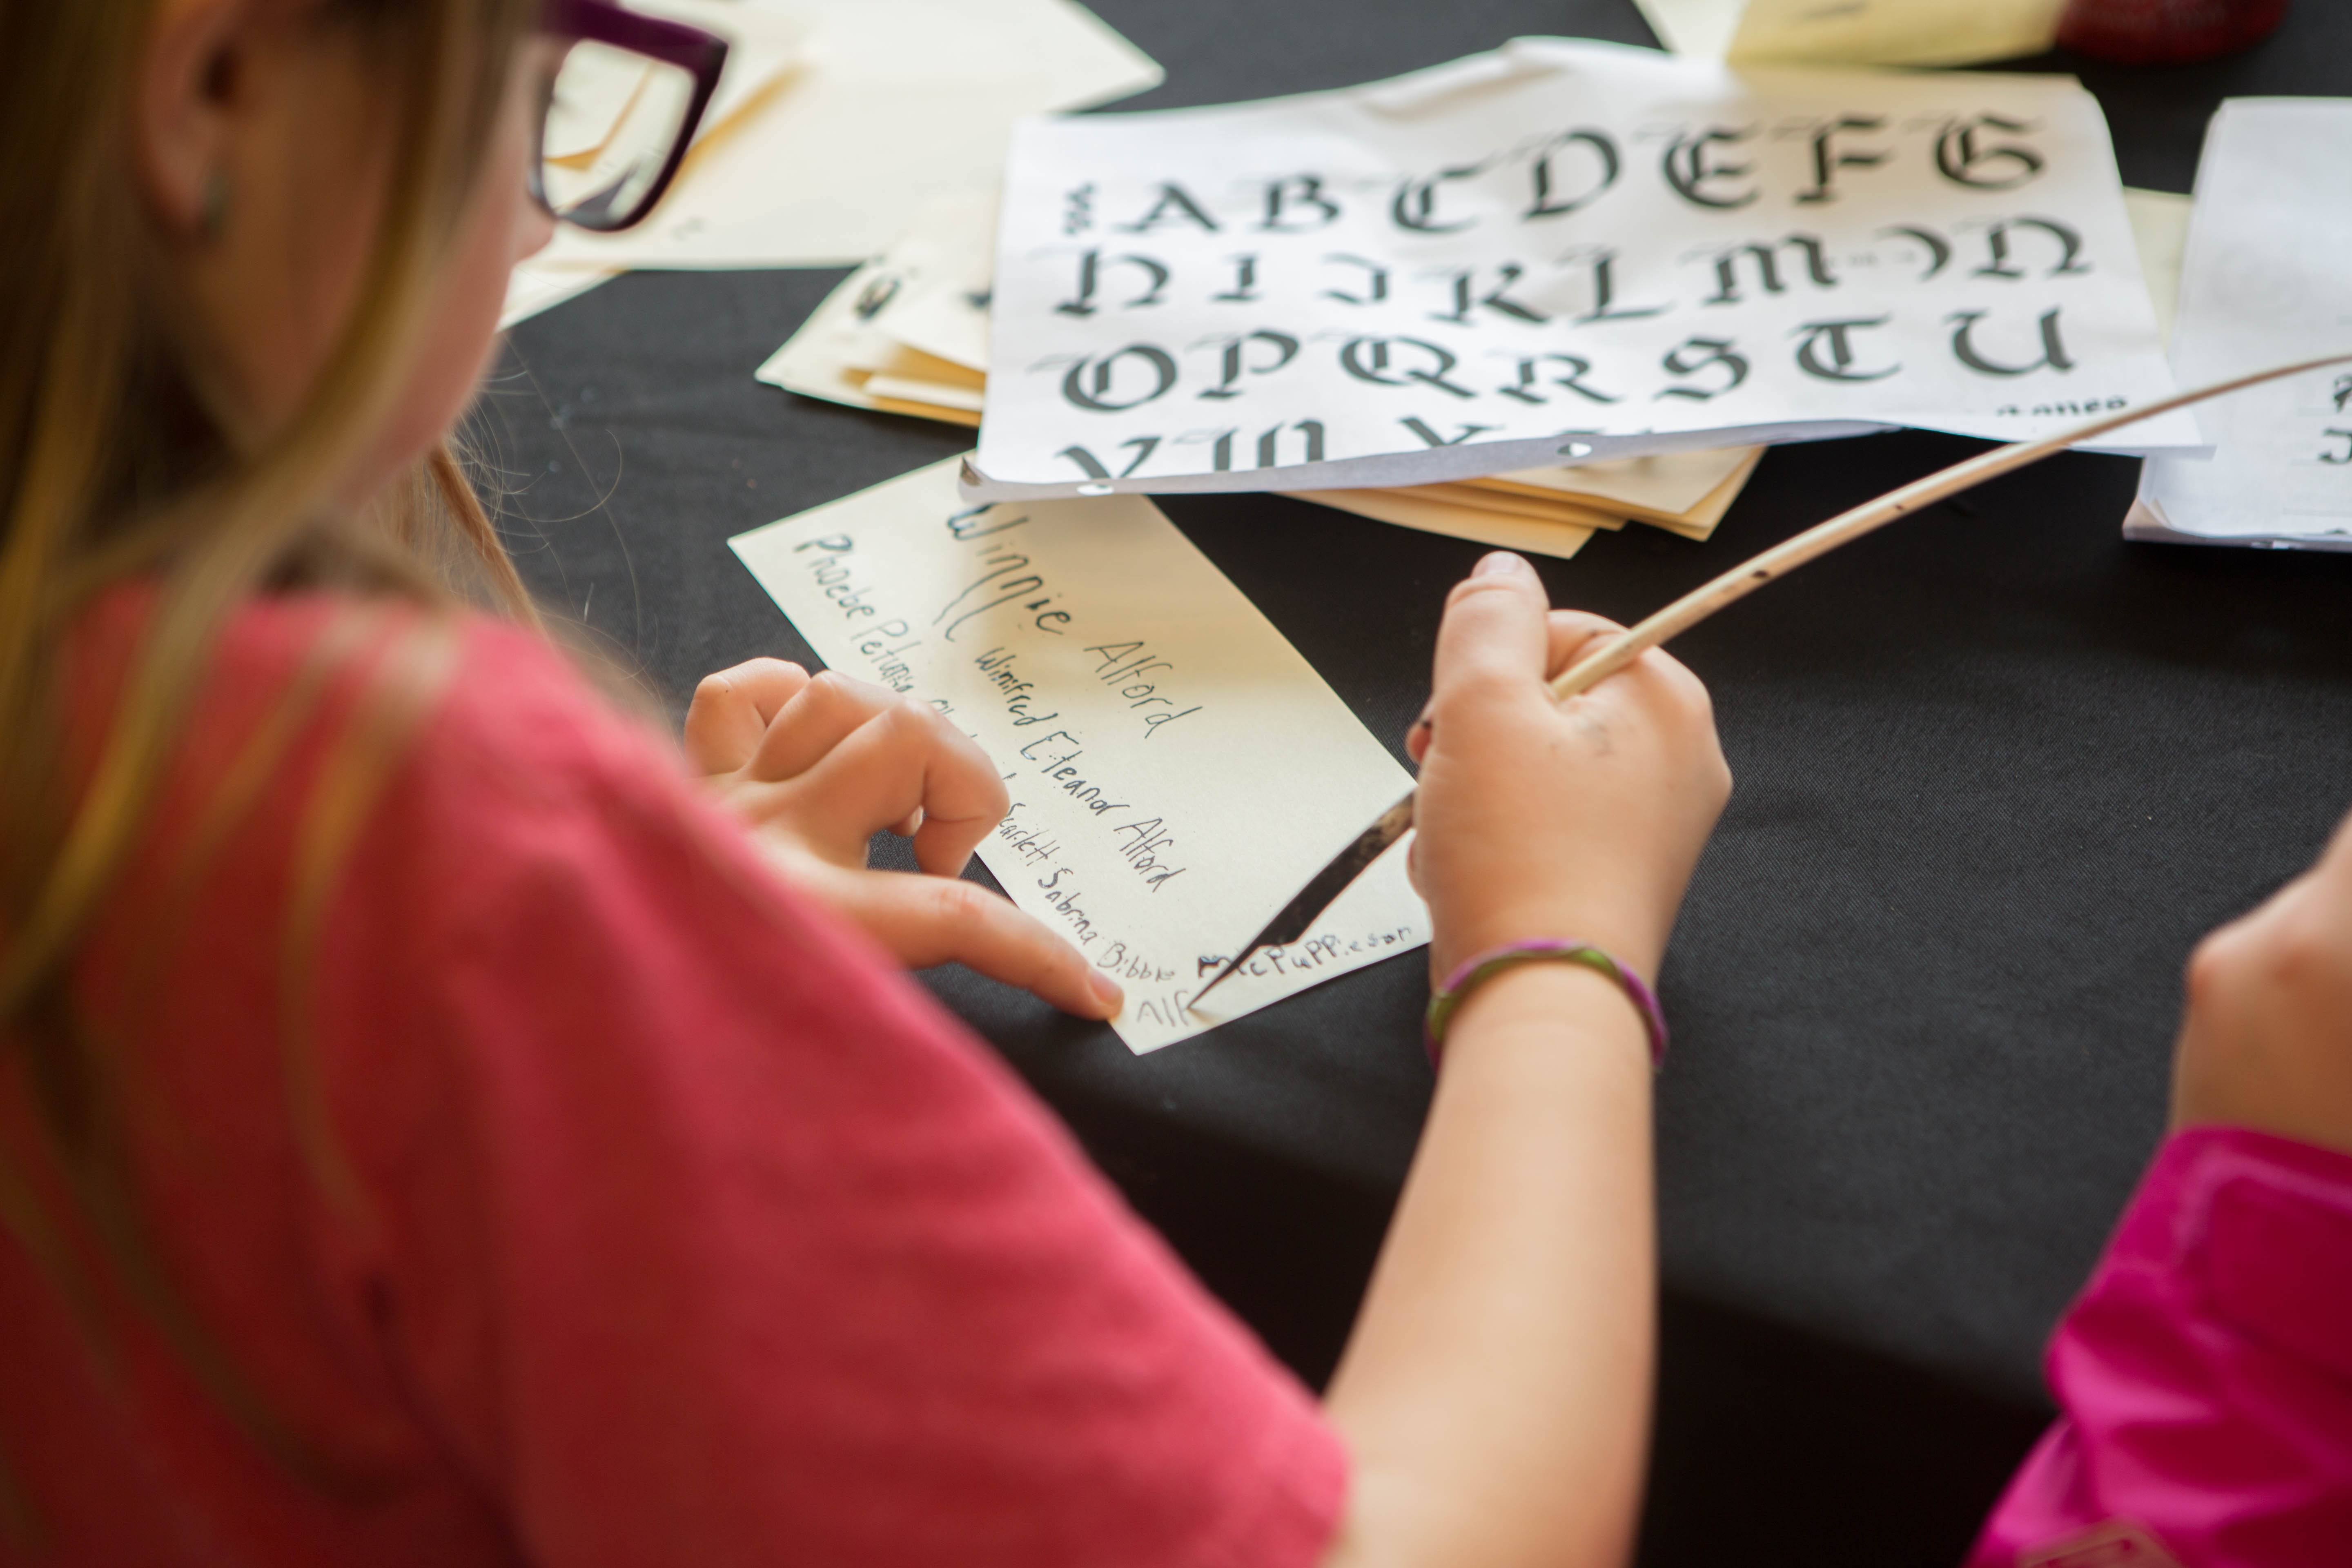 A B C D E F G
H I J K L M N
O P Q R S T U
V W X
Winnie Alford
Winifred Eleanor Alford
Phoebe Petunia
Scarlett Sabrina Bibble
McPuppieson
Alf